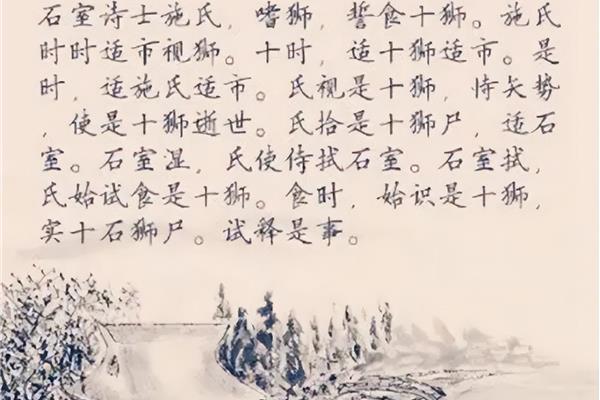 石室诗士施氏，嗜狮，誓食十狮。施氏
时时适市视狮。十时，适十狮适市。是
时，适施氏适市。氏视是十狮，恃矢势
，使是十狮逝世。氏拾是十狮尸，适石
室。石室湿，氏使侍拭石室。石室拭，
氏始试食是十狮。食时，始识是十狮，
实十石狮尸。试释是事。